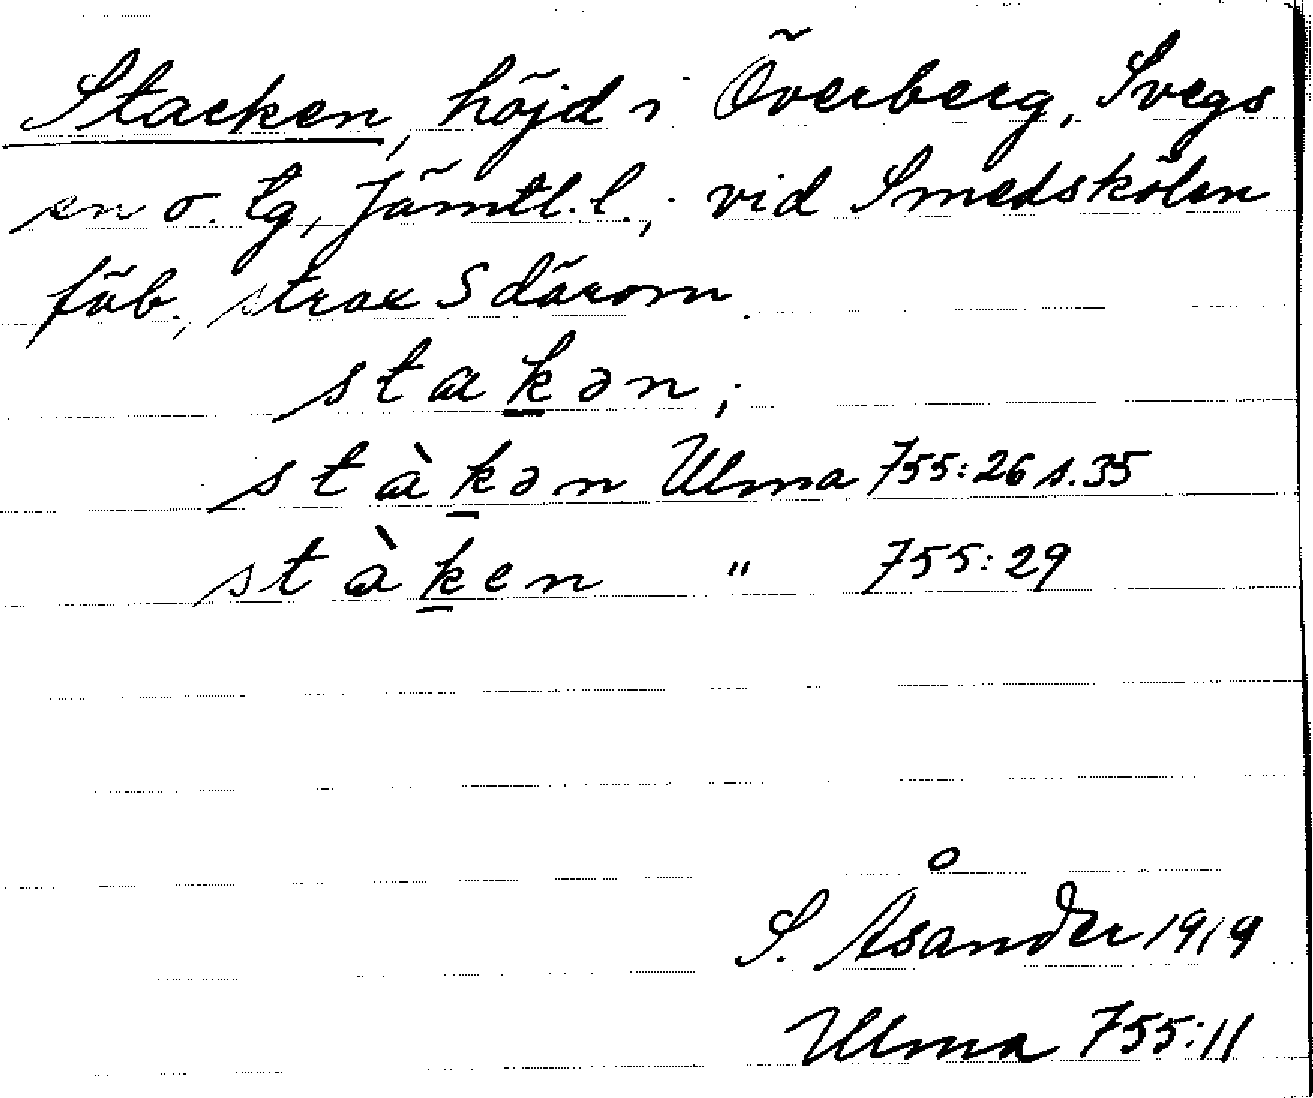 Stacken, höjd i Överberg, Svegs
sn o. tg, Jämtl. l.; vid Smedskölen
fäb., strax S därom.
stakən;
stàkən Ulma 755:26 s.35
stàken " 755:29
S. Åsander 1919
Ulma 755:11